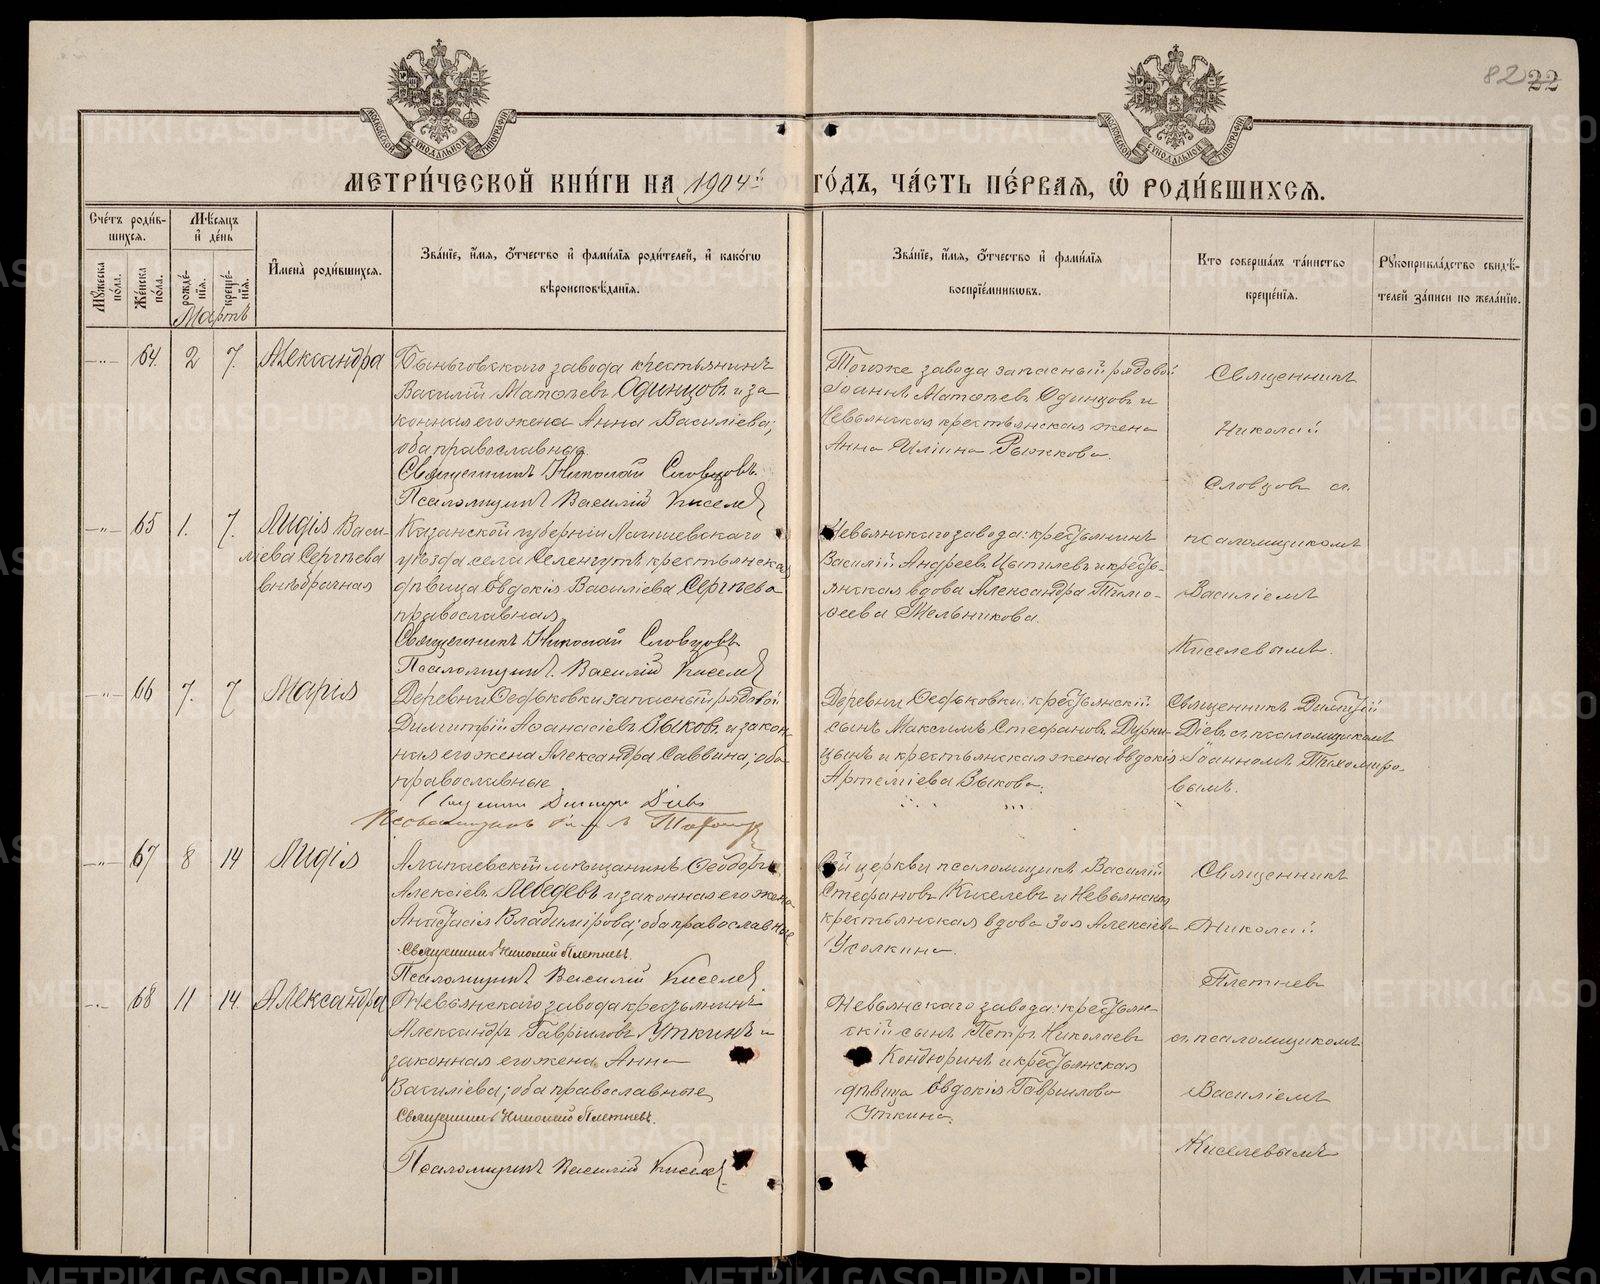 82 22
МОСКОВСКОЙ СУНОДАЛЬНОЙ ТИПОГРАФІИ
МОСКОВСКОЙ СУНОДАЛЬНОЙ ТИПОГРАФІИ
МЕТРИ́ЧЕСКОЙ КНИ́ГИ НА 1904й ГО́ДЪ, ЧА́СТЬ ПЕ́РВАѦ, Ѡ҆ РОДИ́ВШИХСѦ.
Сче́тъ роди́в-
шихсѧ.
Мꙋ́жеска по́ла.
Же́нска по́ла.
Мѣ́сѧцъ
и҆ де́нь
рожде́-
нїѧ.
креще́-
нїѧ.
Мартъ
И҆мена̀ роди́вшихсѧ.
Зва́нїе, и҆́мѧ, ѻ҆́тчество и҆ фами́лїѧ роди́телей, и҆ како́гѡ
вѣроисповѣ́данїѧ.
Зва́нїе, и҆́мѧ, ѻ҆́тчество и҆ фами́лїѧ
воспрїе́мникѡвъ.
Кто̀ соверша́лъ та́инство
креще́нїѧ.
Рꙋкоприкла́дство свидѣ́-
телей за́писи по жела́нїю.
—„— 64. 2 7. Александра
Быньговскаго завода крестьянинъ
Василій Матѳѣевъ Одинцовъ и за
конная его жена Анна Василіева;
оба православные
Священникъ Николай Словцовъ
Псаломщикъ Василій Киселевъ
Тогоже завода запасный рядовой
Іоаннъ Матѳѣевъ Одинцовъ и
Невьянская крестьянская жена
Анна Иліина Рыжкова.
Священникъ
Николай
Словцов съ
—„— 65 1. 7. Лидія Васи-
лiева Сергѣева
внѣбрачная
Казанской губерніи Лаишевскаго
уѣзда села крестьянская
дѣвица Евдокія Василіева Сергѣева
православная
Священникъ Николай Словцовъ
Псаломщикъ Василій Киселевъ
Невьянскаго завода: крестьянинъ
Василій Андреевъ и кресть-
янская вдова Александра Тимо-
ѳеева Мельникова.
псаломщикомъ
Василіемъ
Киселевымъ.
—„— 66 7. 7 Марія
Деревни Ѳедьковки запасный рядовой
Димитрій Аѳанасіевъ Зыковъ и закон-
ная его жена Александра Саввина; оба
православные
Священникъ Димитрій Діевъ
Псаломщикъ
Деревни Ѳедьковки: крестьянскій
сынъ Максимъ Стефановъ Дурни-
цынъ и крестьянская жена Евдокія
Артеміева Зыкова.
Священникъ Димитрій
Діевъ съ псаломщикомъ
Іоанномъ Тихомиро-
вымъ.
—„— 67 8 14 Лидія
Алапаевскій мѣщанинъ Ѳеодоръ
Алексіевъ Лебедевъ и законная его жена
Анастасія Владимірова; оба православные
Священникъ Николай Плетневъ.
Псаломщикъ Василій Киселевъ
Сей церкви псаломщикъ Василій
Стефановъ Киселевъ и Невьянская
крестьянская вдова Зоя Алексіева
Усолкина.
Священникъ
Николай
Плетнев
—„— 68 11 14. Александра
Невьянскаго завода крестьянинъ
Александръ Гавріиловъ Уткинъ и
законная его жена Анна
Василіева; оба православные
Священникъ Николай Плетневъ.
Псаломщикъ Василій Киселевъ
Невьянскаго завода: крестьян-
скій сынъ Петръ Николаевъ
Кондюринъ и крестьянская
дѣвица Евдокія Гавріилова
Уткина.
съ псаломщикомъ
Василіемъ
Киселевымъ
METRIKI.GASO-URAL.RU